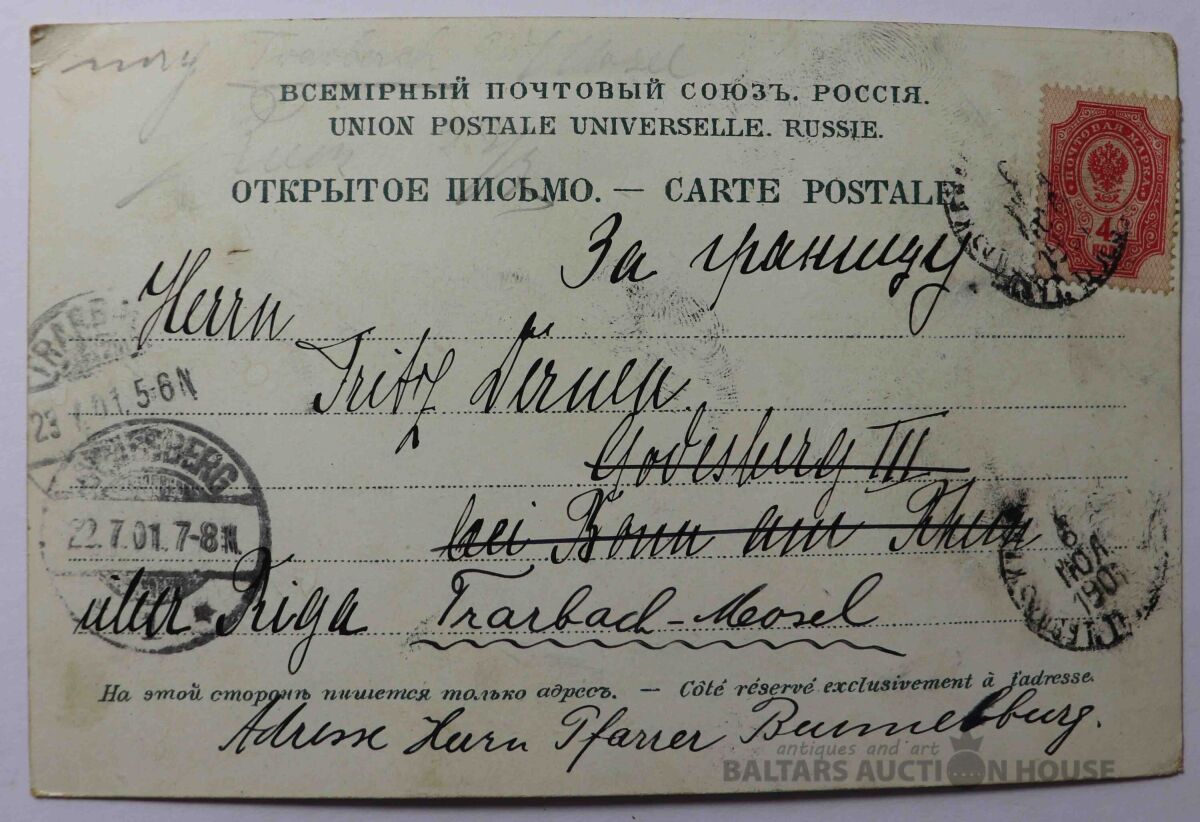 Trarbach Mosel
ВСЕМІРНЫЙ ПОЧТОВЫЙ СОЮЗЪ. РОССІЯ.
UNION POSTALE UNIVERSELLE. RUSSIE.
ОТКРЫТОЕ ПИСЬМО. — CARTE POSTALE
ПОЧТОВАЯ МАРКА
4
За границу
Herrn
Fritz Dernen
Godesberg III
bei Bonn am Rhein
über Riga Trarbach-Mosel
5-6N
22.7.01.7-8N
ІЮЛ
1901
На этой сторонѣ пишется только адресъ. — Côté réservé exclusivement à l'adresse.
Adresse Herrn Pfarrer Bummelburg.
antiques and art
BALTARS AUCTION HOUSE